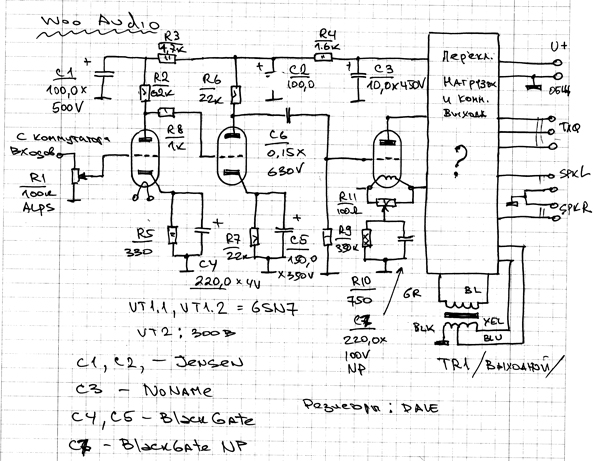 Woo Audio
R3
4,7K
R4
1.6K
U+
+ C1
100,0x
500V
R2
62K
R6
22K
+
C2
100,0
+
C3
10,0x450V
Перекл.
Нагрузок
и комм.
Выхода
?
общ
R8
1K
C6
0,15x
630V
С коммутатора
Входов
R1
100K
ALPS
R11
100Ω
SPKL
SPKR
R5
330
+
C4
220,0x4V
R7
22K
+
C5
150,0
x350V
R9
330K
R10
750
C7
220,0x
100V
NP
GR
BL
BLK
YEL
BLU
TR1 /Выходной/
VT1.1, VT1.2 = 6SN7
VT2: 300B
C1, C2, - Jensen
C3 - NoName
C4, C5 - BlackGate
C7 - BlackGate NP
Резисторы: DALE